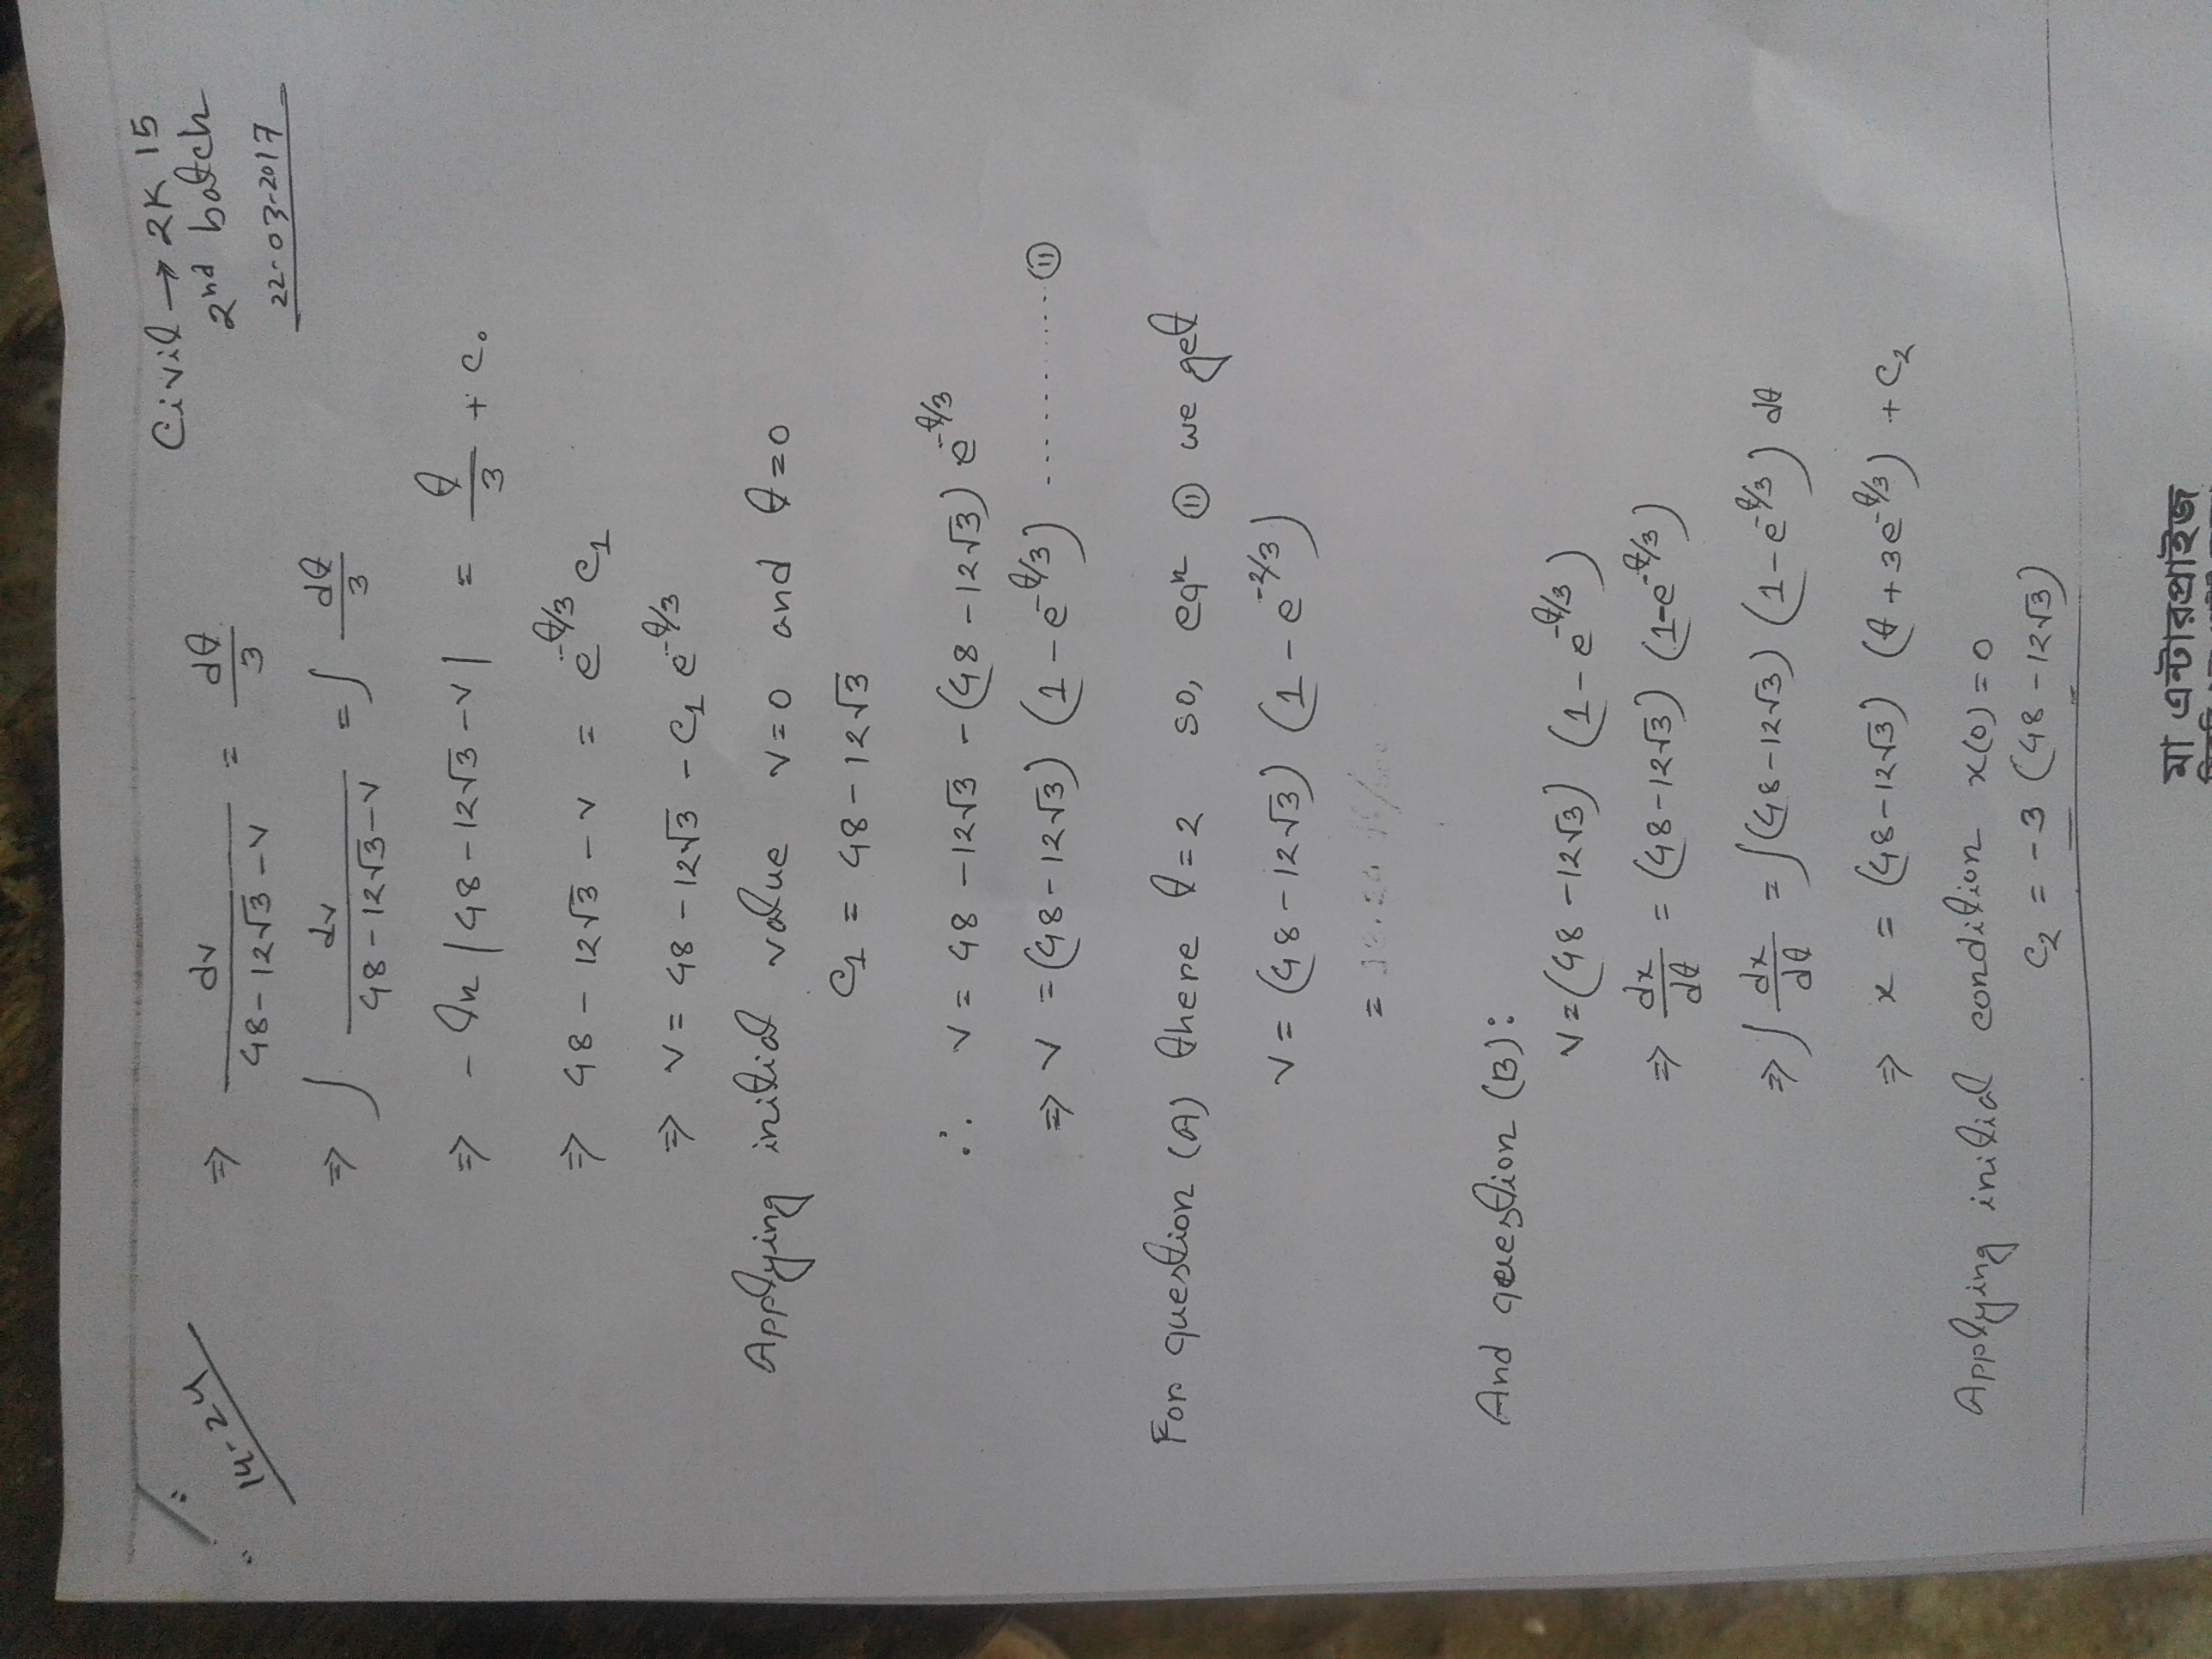 14-24
Civil → 2K 15
2nd batch
22-03-2017
⇒ dv/(48-12√3-v) = dt/3
⇒ ∫ dv/(48-12√3-v) = ∫ dt/3
⇒ -ln|48-12√3-v| = t/3 + c₀
⇒ 48-12√3-v = e^(-t/3) c₁
⇒ v = 48-12√3 - c₁ e^(-t/3)
Applying initial value v=0 and t=0
c₁ = 48-12√3
∴ v = 48-12√3-(48-12√3) e^(-t/3)
⇒ v = (48-12√3) (1-e^(-t/3)) ............ (ii)
For question (A) there t=2 so, eqn (ii) we get
v = (48-12√3) (1-e^(-2/3))
=
And question (B):
v=(48-12√3) (1-e^(-t/3))
⇒ dx/dt = (48-12√3) (1-e^(-t/3))
⇒ ∫ dx/dt = ∫(48-12√3) (1-e^(-t/3)) dt
⇒ x = (48-12√3) (t+3e^(-t/3)) + c₂
Applying initial condition x(0)=0
c₂ = -3 (48-12√3)
মা এন্টারপ্রাইজ